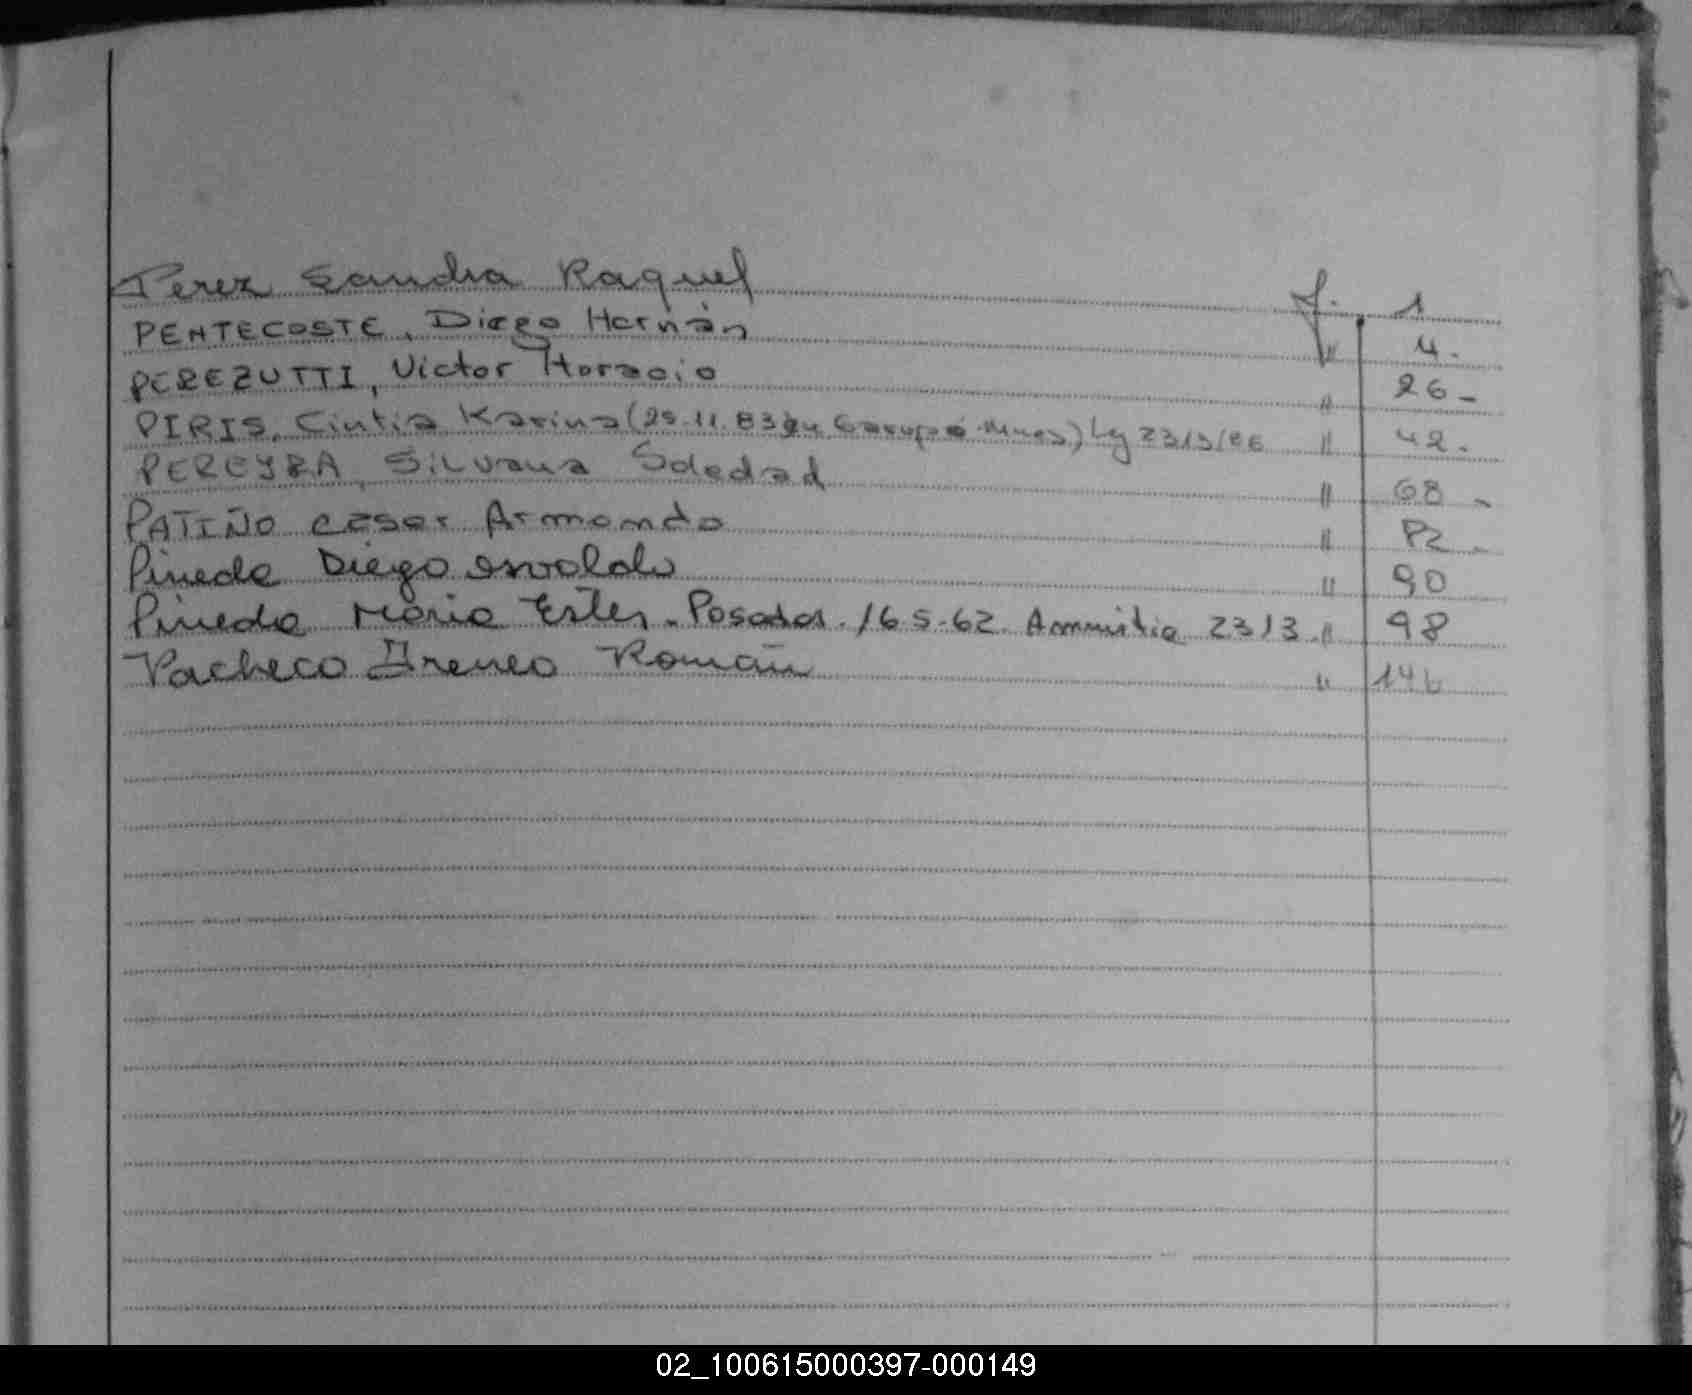 Perez Sandra Raquel f. 1
PENTECOSTE, Diego Hernán " 4.
PEREZUTTI, Victor Horacio " 26-
PIRIS, Cintia Karina (29.11.83 en Garupá Mnes) Ly 23/3/86 " 42.
PEREYRA, Silvana Soledad " 68-
PATIÑO César Armando " 82-
Pineda Diego Osvaldo " 90
Pineda Maria Ester. Posadas. 16-5-62. Ammistia 23/3. " 98
Pacheco Ireneo Román " 146
02_100615000397-000149